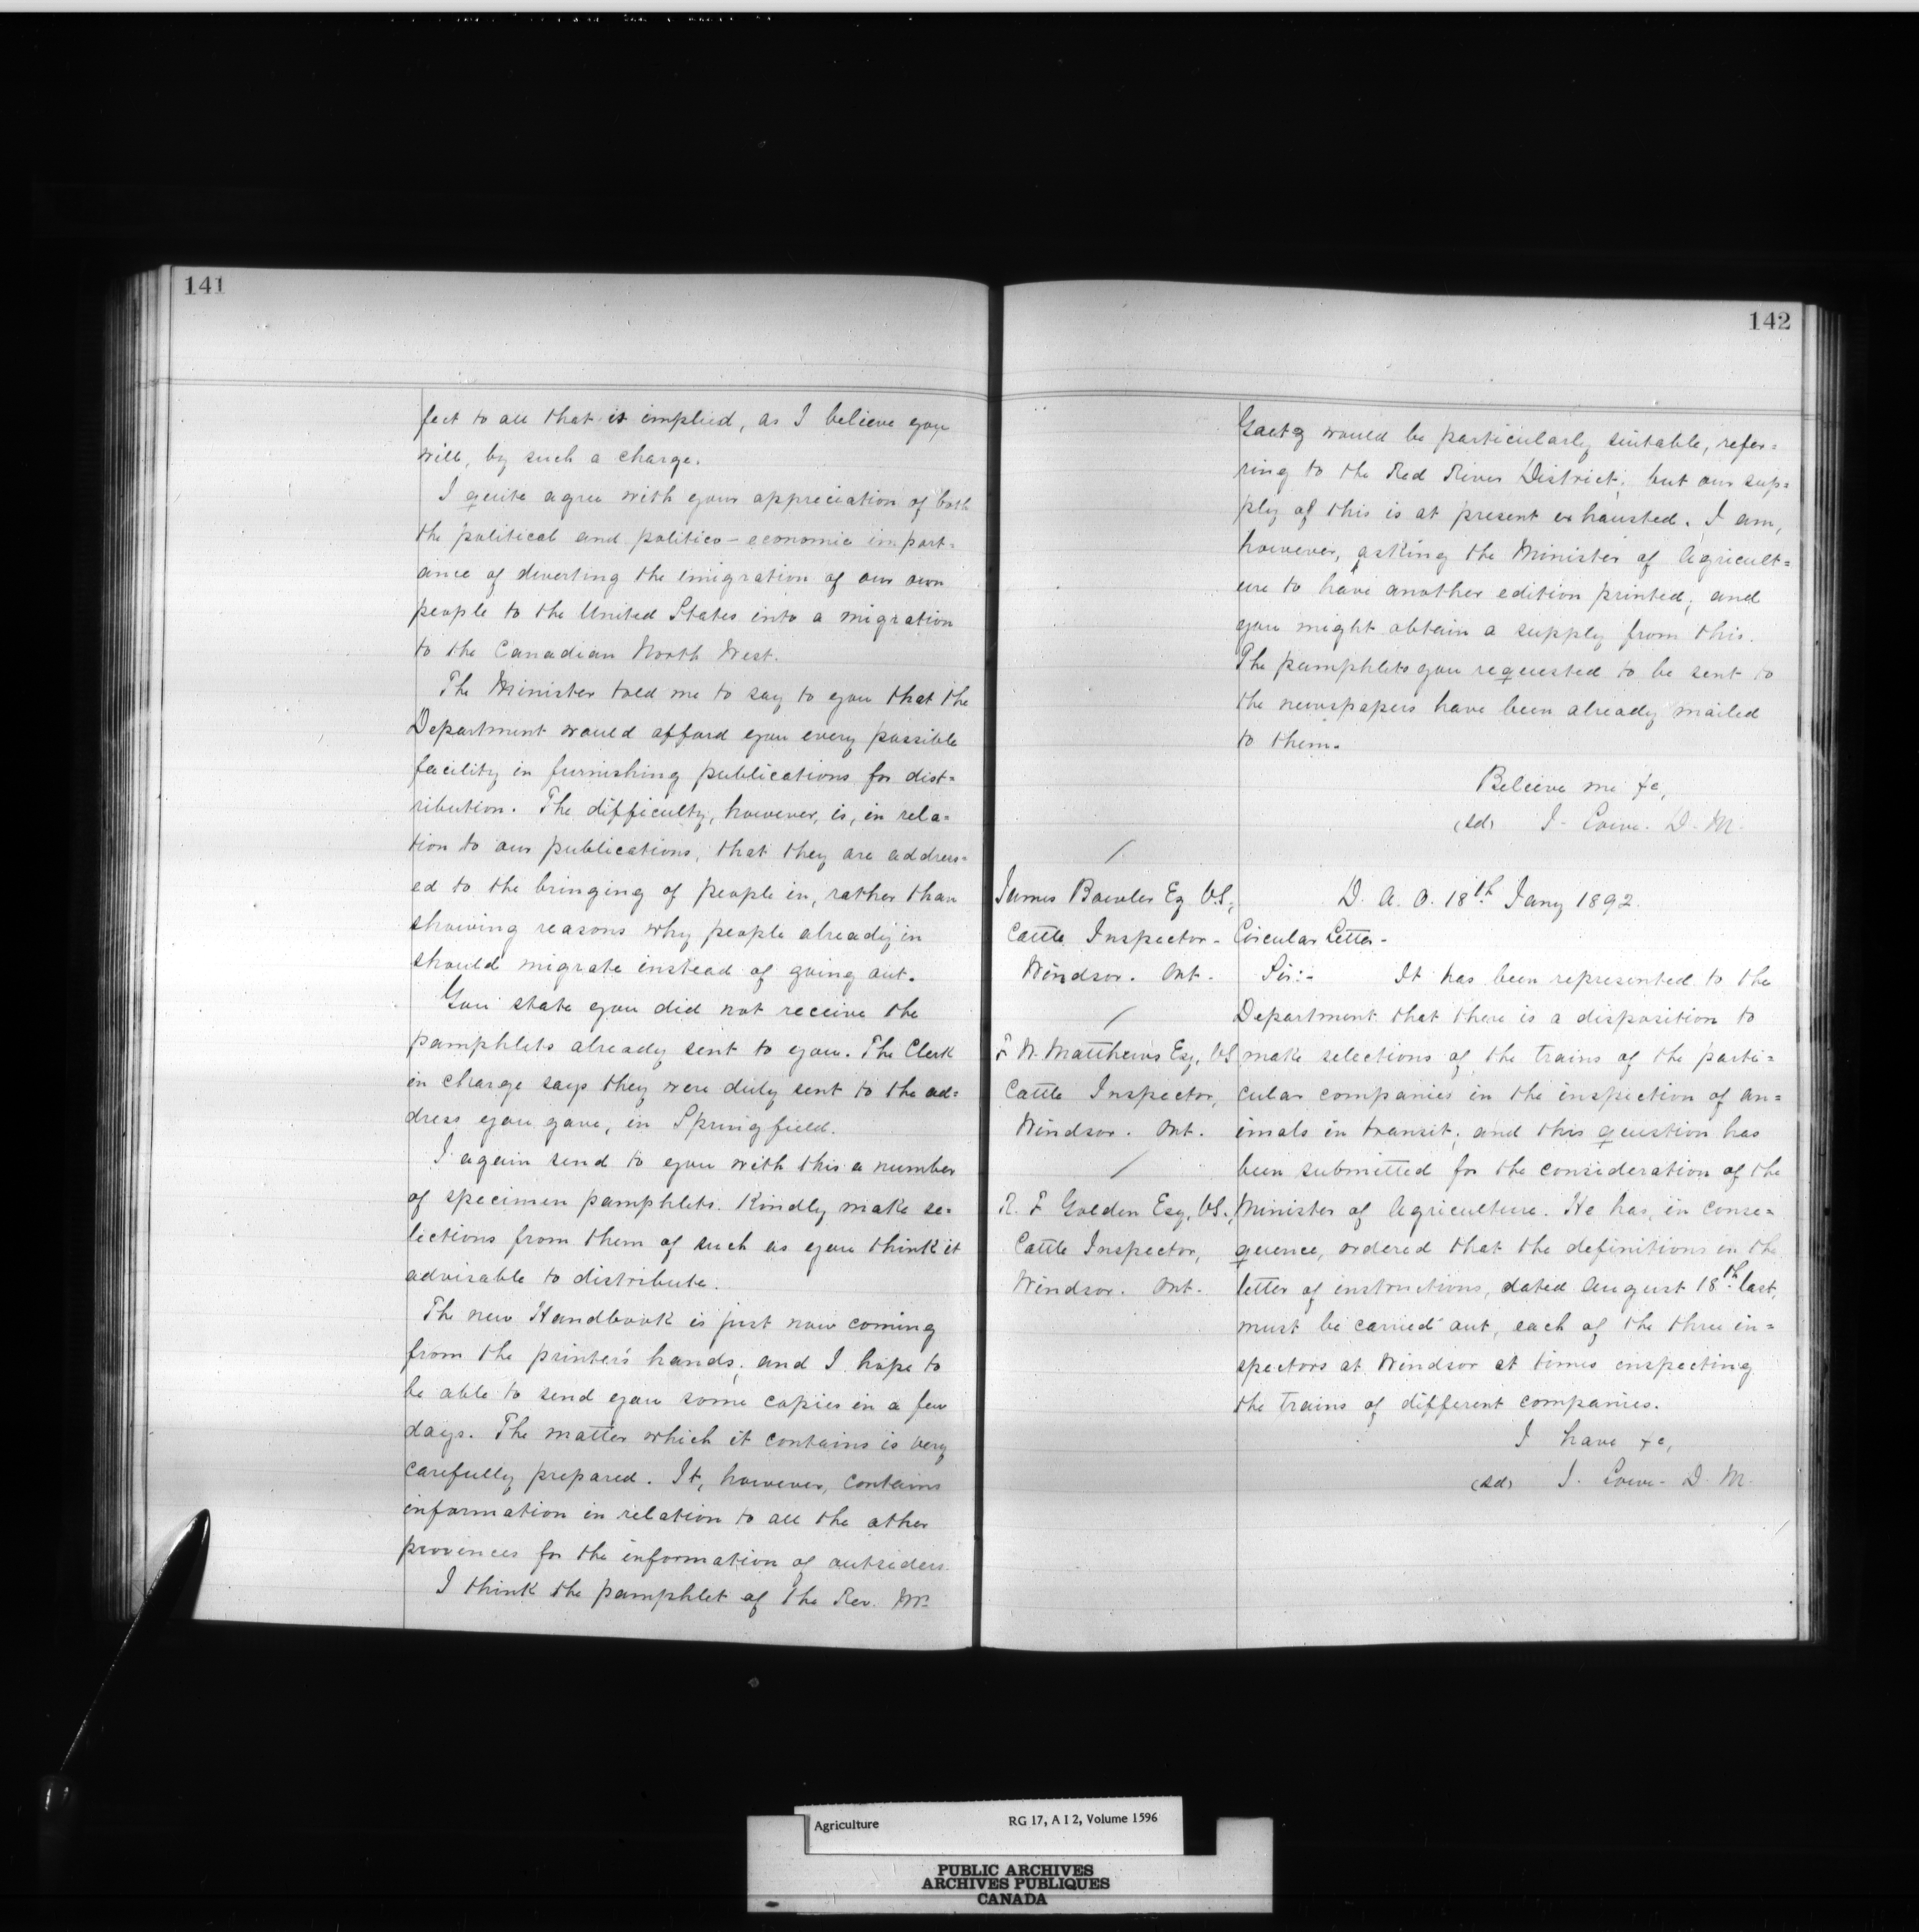 141
fect to all that is implied, as I believe you
will, by such a charge.
I quite agree with your appreciation of both
the political and politico-economic import=
ance of diverting the emigration of our own
people to the United States into a migration
to the Canadian North West.
The Minister told me to say to you that the
Department would afford you every possible
facility in furnishing publications for dist=
ribution. The difficulty, however, is, in rela=
tion to our publications, that they are address=
ed to the bringing of people in, rather than
showing reasons why people already in
should migrate instead of going out.
You state you did not receive the
pamphlets already sent to you. The Clerk
in charge says they were duly sent to the ad=
dress you gave, in Springfield.
I again send to you with this a number
of specimen pamphlets. Kindly make se=
lections from them of such as you think it
advisable to distribute.
The new Handbook is just now coming
from the printer's hands; and I hope to
be able to send you some copies in a few
days. The matter which it contains is very
carefully prepared. It, however, contains
information in relation to all the other
provinces for the information of outsiders.
I think the pamphlet of the Rev. Mr.
142
Gaetz would be particularly suitable, refer=
ring to the Red River District; but our sup=
ply of this is at present exhausted. I am,
however, asking the Minister of Agricult=
ure to have another edition printed; and
you might obtain a supply from this.
The pamphlets you requested to be sent to
the newspapers have been already mailed
to them.
Believe me &c,
(sd) J. Lowe. D. M.
James Bowler Eq V.S.,
Cattle Inspector-
Windsor. Ont.
F. W. Matthews Esq, VS
Cattle Inspector,
Windsor. Ont.
R. F. Golden Esq, VS.,
Cattle Inspector,
Windsor. Ont.
D. A. O. 18th Jany 1892.
Circular Letter-
Sir:- It has been represented to the
Department that there is a disposition to
make selections of the trains of the parti=
cular companies in the inspection of an=
imals in transit; and this question has
been submitted for the consideration of the
Minister of Agriculture. He has, in conse=
quence, ordered that the definitions in the
letter of instructions, dated August 18th last,
must be carried out, each of the three in=
spectors at Windsor at times inspecting
the trains of different companies.
I have &c,
(sd) J. Lowe- D. M.
Agriculture RG 17, A I 2, Volume 1596
PUBLIC ARCHIVES
ARCHIVES PUBLIQUES
CANADA